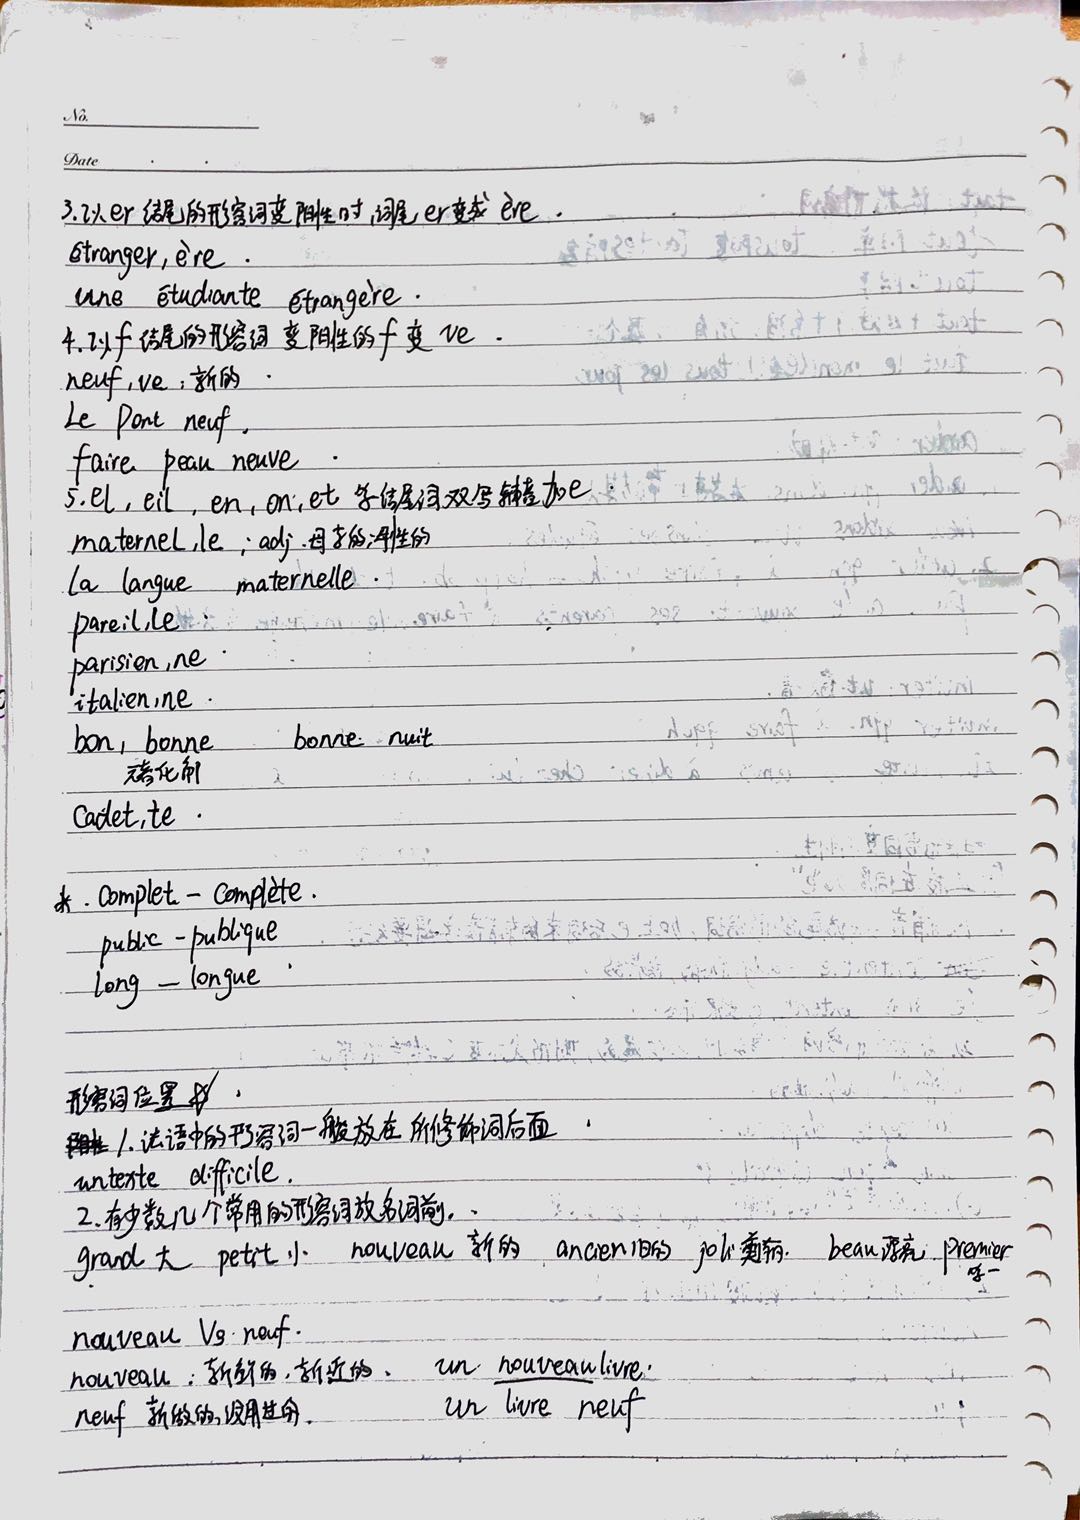 No.
Date
3.以er 结尾的形容词变阴性时,词尾er变成 ère.
étranger, ère.
une étudiante étrangère.
4.以f结尾的形容词 变阴性的f变 ve.
neuf, ve:新的.
Le Pont neuf.
faire peau neuve.
5.el, eil, en, on, et 等结尾词双写辅音加e.
maternel, le; adj.母亲的,母性的
la langue maternelle.
pareil, le.
parisien, ne.
italien, ne.
bon, bonne bonne nuit
Cadet, te.
*. Complet - Complète.
public - publique
long - longue
形容词位置
1.法语中的形容词一般放在所修饰词后面.
un texte difficile.
2.有少数几个常用的形容词放名词前.
grand 大 petit 小 nouveau 新的 ancien 旧的 joli 美丽 beau 漂亮 premier
第一
nouveau Vs. neuf.
nouveau:新鲜的,新近的. un nouveau livre.
neuf 新做的,没用过的. un livre neuf